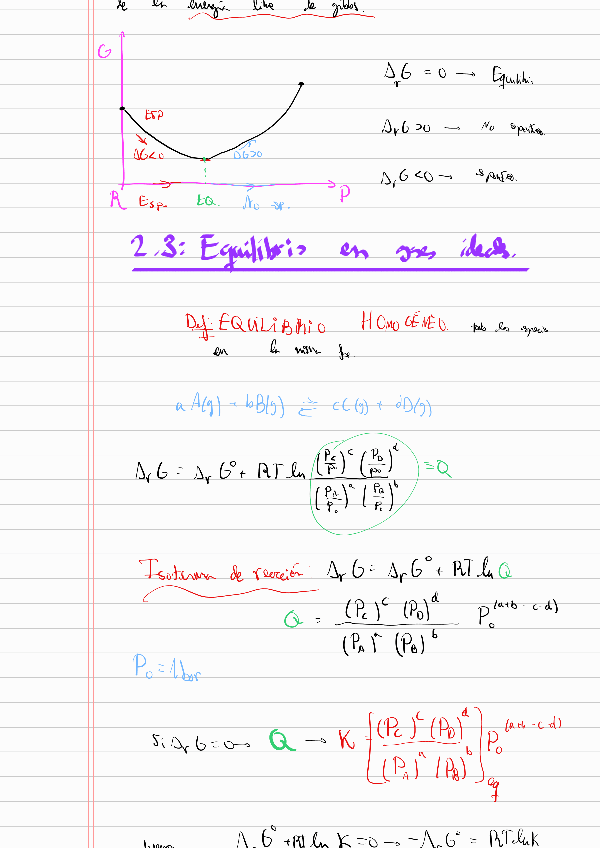 se en energía libre de gibbs.
G
ΔrG = 0 → Equilibri
ESP
ΔrG>0 → No spontan.
ΔG<0 ΔG>0
ΔrG <0 → spontan.
R Esp. EQ. No esp. P
2.3: Equilibrio en gases ideales.
Def: EQUILIBRIO HOMOGÉNEO. todas las especies
en la misma fase.
aA(g) + bB(g) ⇌ cC(g) + dD(g)
ΔrG = ΔrG° + RT ln (Pc/P°)^c (PD/P°)^d / (PA/P°)^a (PB/P°)^b = Q
Isoterma de reacción: ΔrG = ΔrG° + RT ln Q
Q = (Pc)^c (PD)^d / (PA)^a (PB)^b P₀^(a+b-c-d)
P₀ = 1bar
Si ΔrG = 0 → Q → K = [(Pc)^c (PD)^d / (PA)^a (PB)^b]eq P₀^(a+b-c-d)
ΔrG° + RT ln K = 0 → -ΔrG° = RT ln K